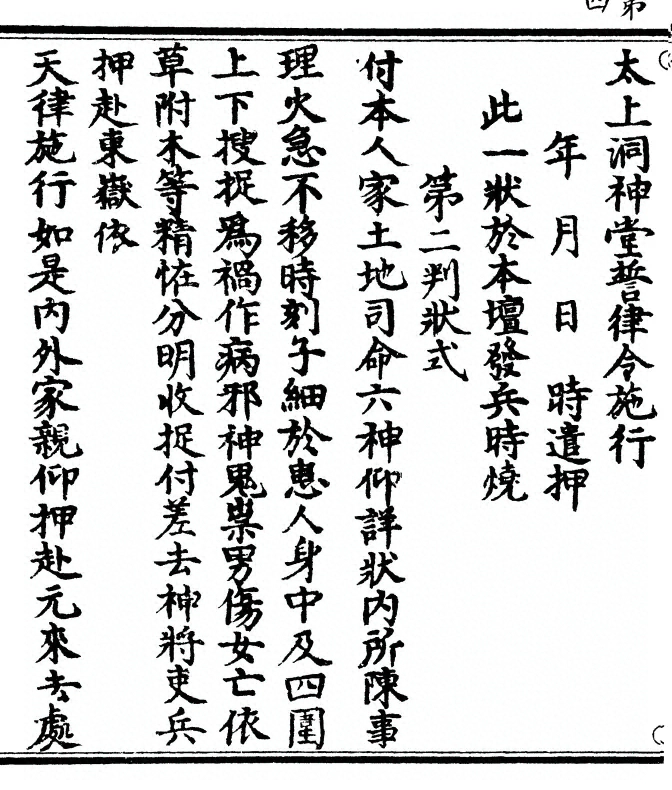 第四
太上洞神堂誓律令施行
年月日　時遣押
此一狀於本壇發兵時燒
第二判狀式
付本人家土地司命六神仰詳狀内所陳事
理火急不移時刻子細於患人身中及四圍
上下搜捉爲禍作病邪神鬼祟男傷女亡依
草附木等精恠分明收捉付差去神將吏兵
押赴東嶽依
天律施行如是内外家親仰押赴元來去處